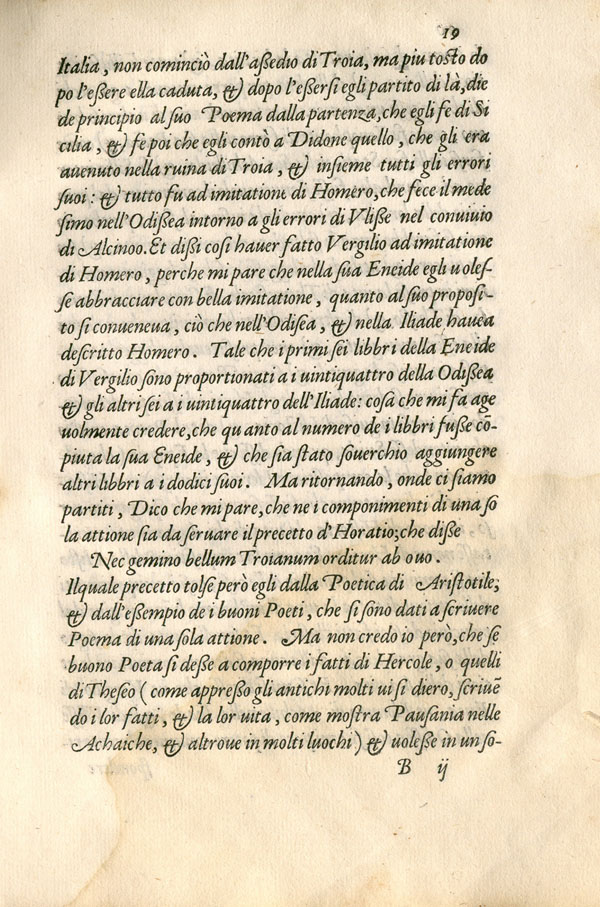 19
Italia, non cominciò dall'aßedio di Troia, ma piu tosto do
po l'eßere ella caduta, & dopo l'eßersi egli partito di là, die
de principio al suo Poema dalla partenza, che egli fe di Si
cilia, & fe poi che egli contò a Didone quello, che gli era
auenuto nella ruina di Troia, & insieme tutti gli errori
suoi: & tutto fu ad imitatione di Homero, che fece il mede
simo nell'Odißea intorno a gli errori di Vliße nel conuiuio
di Alcinoo. Et dißi cosi hauer fatto Vergilio ad imitatione
di Homero, perche mi pare che nella sua Eneide egli uoles-
se abbracciare con bella imitatione, quanto al suo proposi-
to si conueneua, ciò che nell'Odisea, & nella Iliade hauea
descritto Homero. Tale che i primi sei libbri della Eneide
di Vergilio sono proportionati a i uintiquattro della Odißea
& gli altri sei a i uintiquattro dell'Iliade: cosa che mi fa age
uolmente credere, che quanto al numero de i libbri fuße cō-
piuta la sua Eneide, & che sia stato souerchio aggiungere
altri libbri a i dodici suoi. Ma ritornando, onde ci siamo
partiti, Dico che mi pare, che ne i componimenti di una so
la attione sia da seruare il precetto d'Horatio; che diße
Nec gemino bellum Troianum orditur ab ouo.
Ilquale precetto tolse però egli dalla Poetica di Aristotile,
& dall'eßempio de i buoni Poeti, che si sono dati a scriuere
Poema di una sola attione. Ma non credo io però, che se
buono Poeta si deße a comporre i fatti di Hercole, o quelli
di Theseo (come appreßo gli antichi molti ui si diero, scriuē
do i lor fatti, & la lor uita, come mostra Pausania nelle
Achaiche, & altroue in molti luochi) & uoleße in un so-
B ij